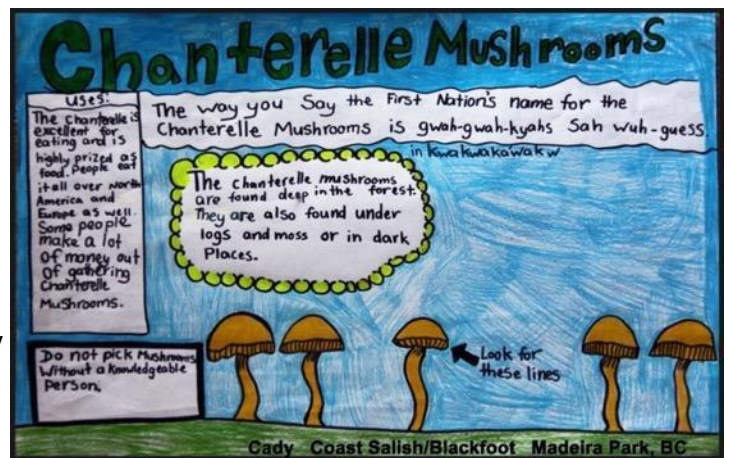 Chanterelle Mushrooms
uses:
The Chanterelle is
excellent for
eating and is
highly prized as
food. People eat
it all over North
America and
Europe as well.
Some people
make a lot
of money out
of gathering
Chanterelle
Mushrooms.
The way you Say the First Nation's name for the
Chanterelle Mushrooms is gwah-gwah-kyahs Sah wuh-guess.
in kwakwakawakw
The chanterelle mushrooms
are found deep in the forest.
They are also found under
logs and moss or in dark
Places.
Do not pick Mushrooms
Without a Knowledgeable
Person.
Look for
these lines
Cady Coast Salish/Blackfoot Madeira Park, BC